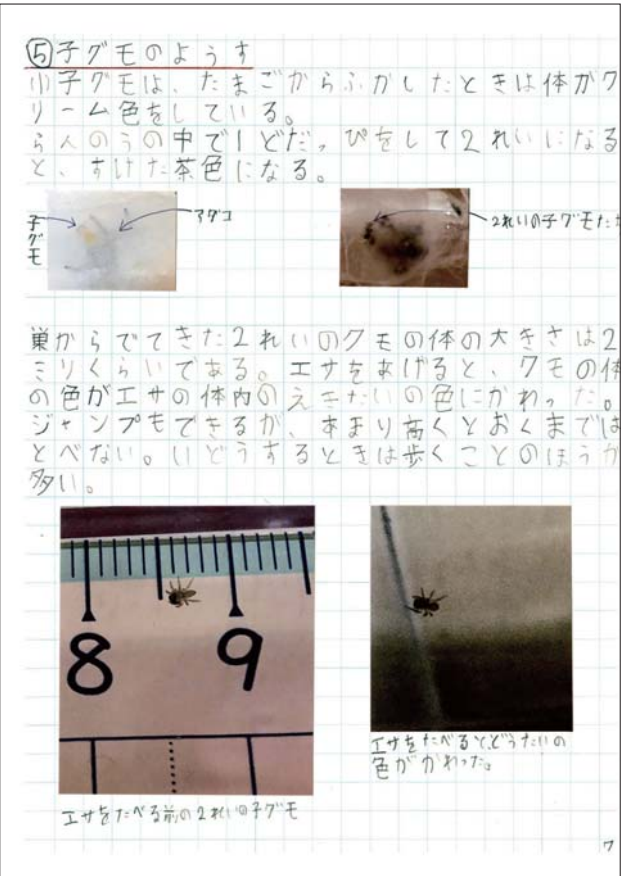 ⑤子グモのようす
子グモは、たまごからふかしたときは体がク
リーム色をしている。
らんのうの中で1どだっぴをして2れいになる
と、すけた茶色になる。
子グモ
2れいの子グモたち
巣からでてきた2れいのクモの体の大きさは2
ミリくらいである。エサをあげると、クモの体
の色がエサの体内のえきたいの色にかわった。
ジャンプもできるが、あまり高くとおくまでは
とべない。いどうするときは歩くことのほうが
多い。
8 9
エサをたべるとどうたいの
色がかわった。
エサをたべる前の2れいの子グモ
7